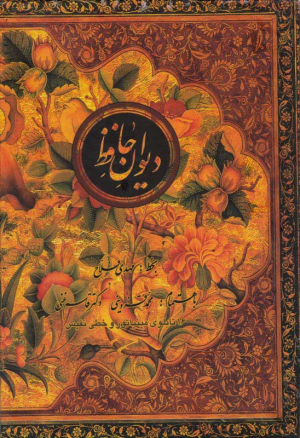 دیوان حافظ
بخط: مهدی فلاح
باهتمام: محمد قزوینی دکتر قاسم غنی
با تابلوی مینیاتور و خطی نفیس